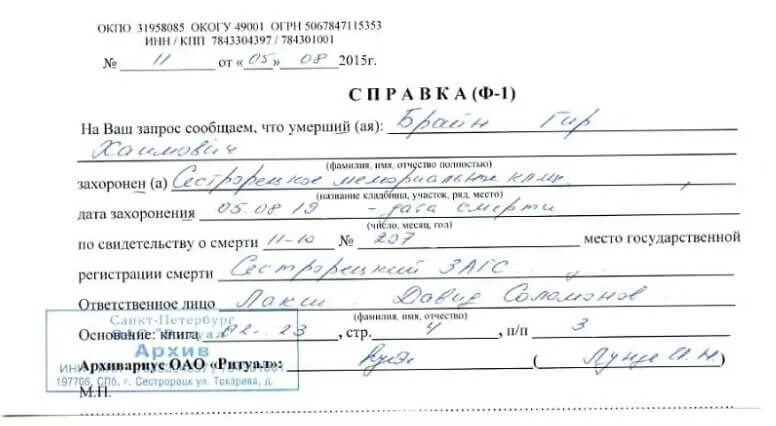 ОКПО 31958085 ОКОГУ 49001 ОГРН 5067847115353
ИНН / КПП 7843304397 / 784301001
№ 11 от «05» 08 2015г.
С П Р А В К А (Ф-1)
На Ваш запрос сообщаем, что умерший (ая): Брайн Гир
Хаимович
(фамилия, имя, отчество полностью)
захоронен (а) Сестрорецкое мемориальное
(название кладбища, участок, ряд, место)
дата захоронения 05.08.19 - дата смерти
(число, месяц, год)
по свидетельству о смерти 11-10 № 207 место государственной
регистрации смерти Сестрорецкий ЗАГС
Ответственное лицо Давид Соломонов
(фамилия, имя, отчество)
Санкт-Петербург
Основание: книга 23, стр. 4, п/п 3
Архив
Архивариус ОАО «Ритуал»:
197706, СПб, г. Сестрорецк ул. Токарева, д.
М.П.